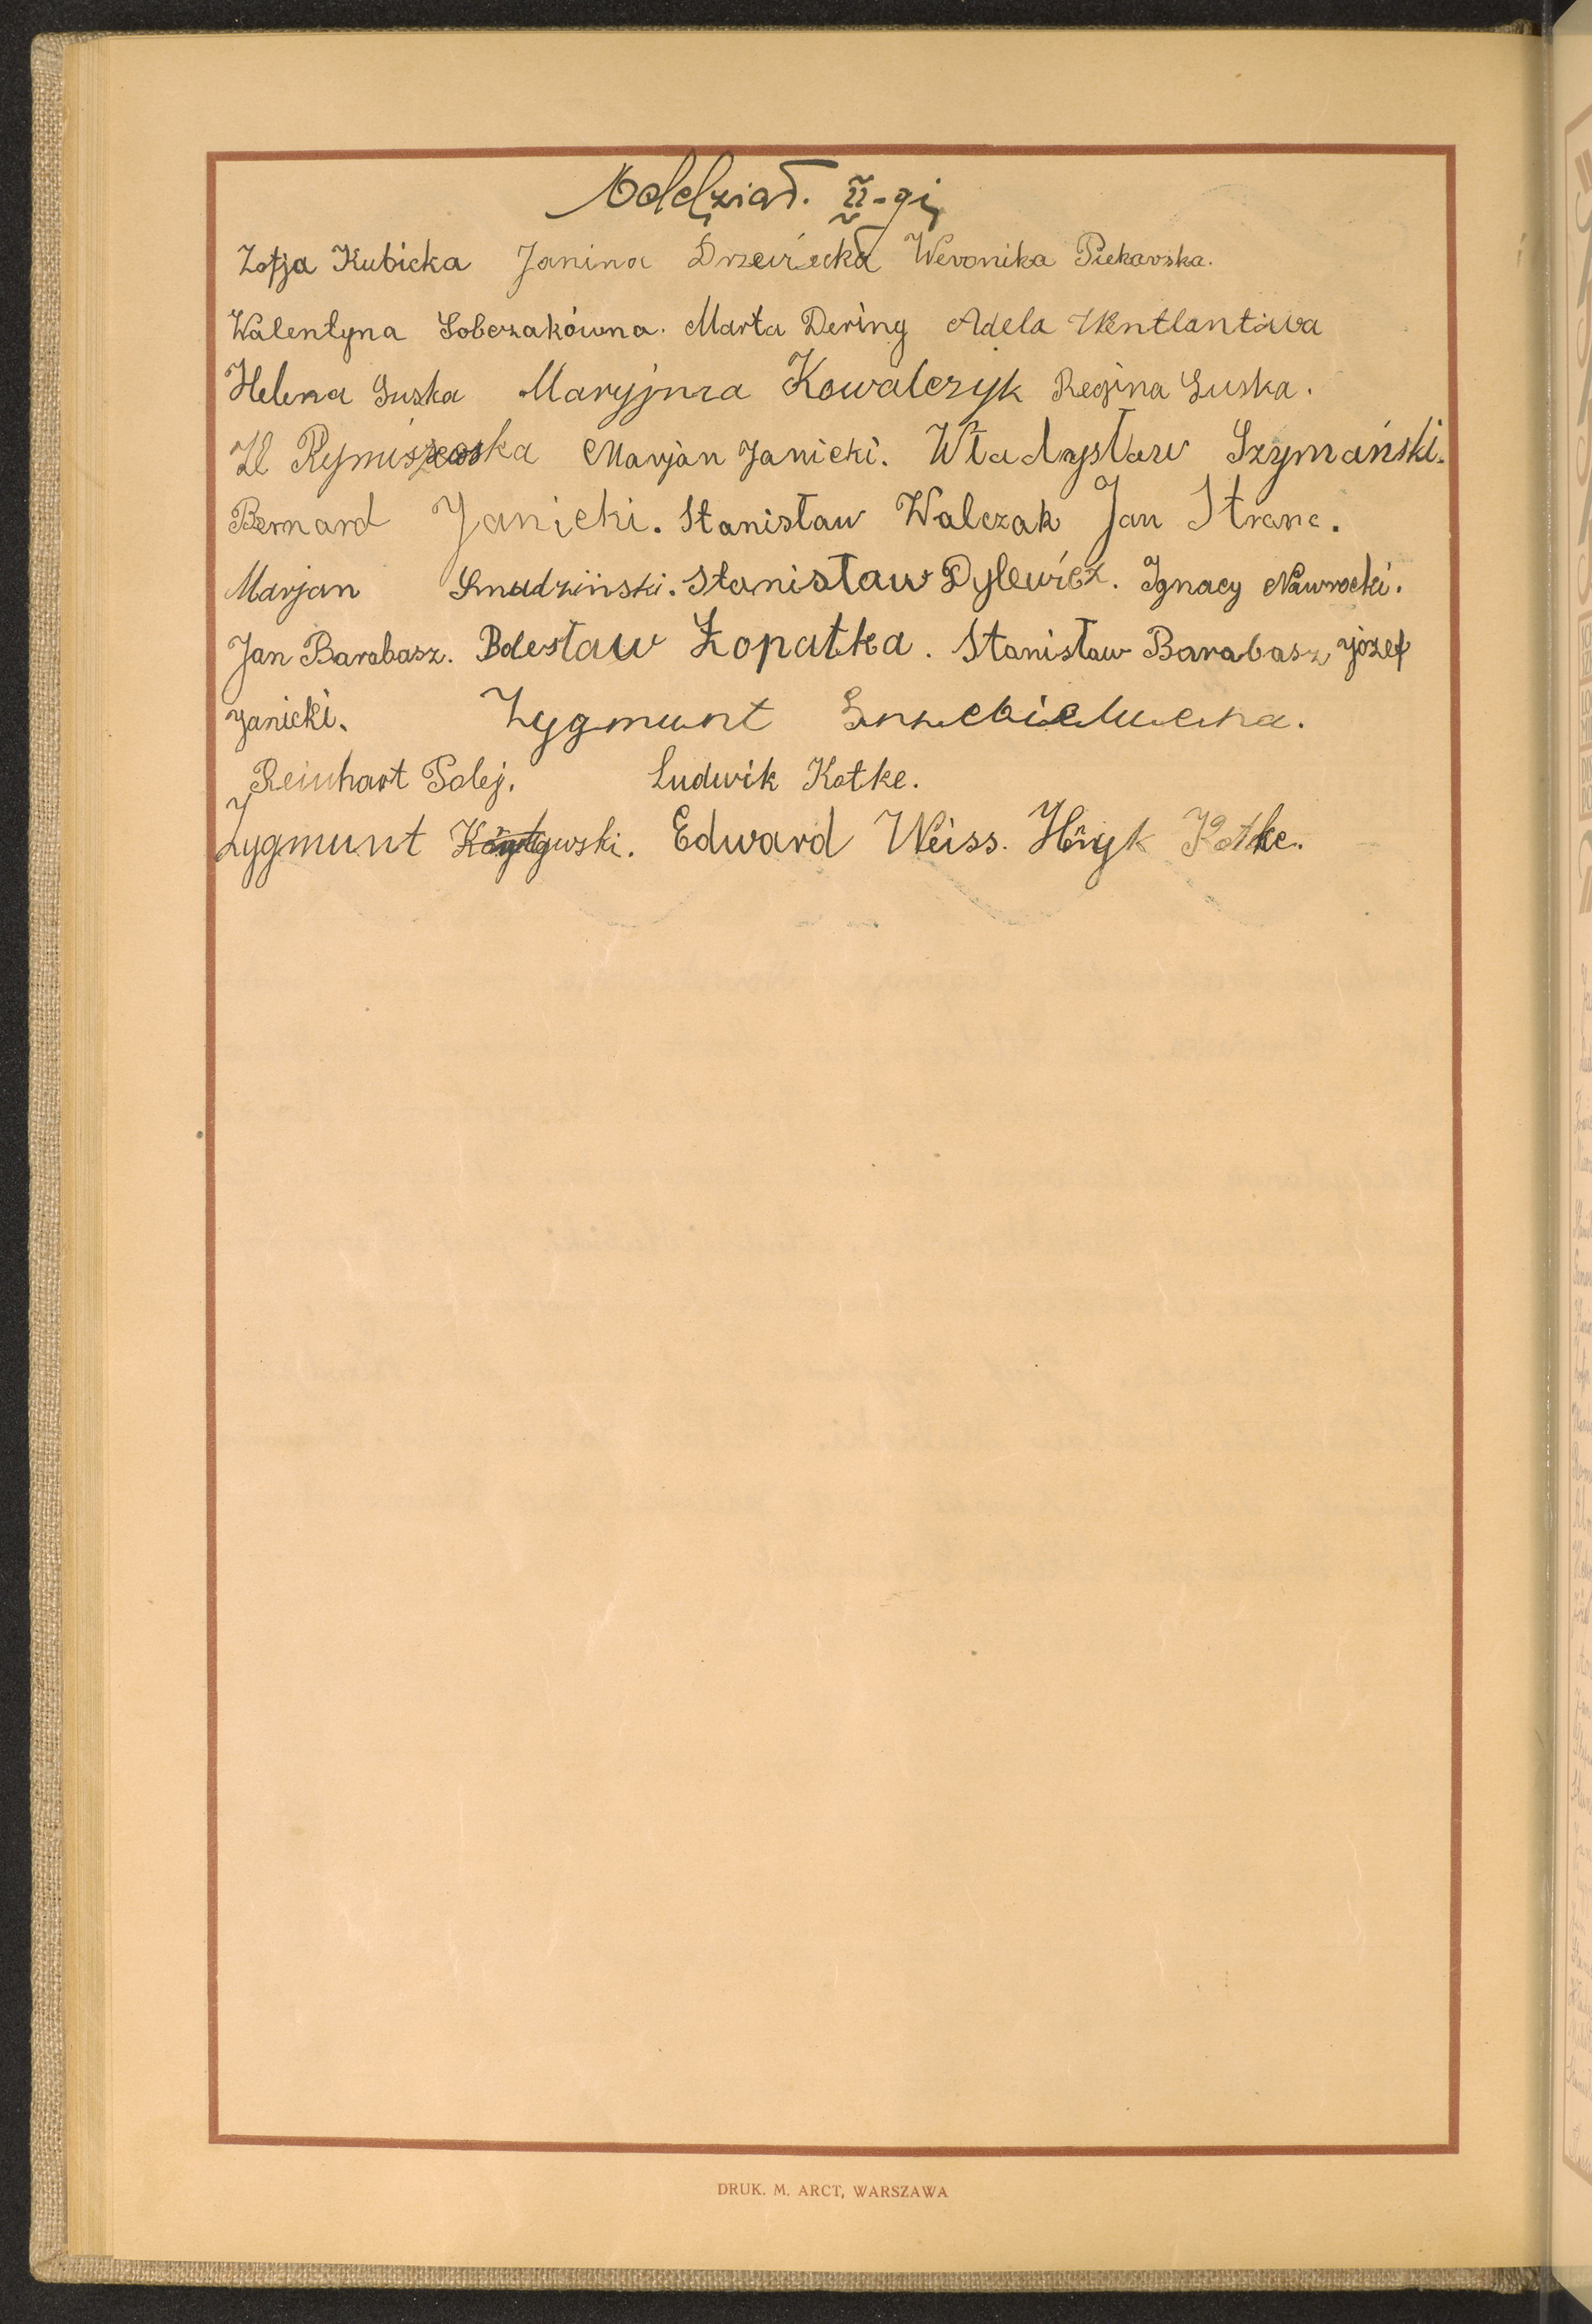 Oddział. II-gi
Zofja Kubicka Janina Drzewiecka Weronika Piekarska.
Walentyna Sobczakówna. Marta Dering Adela Wentlantówa
Helena Guska Maryjnza Kowalczyk Regina Guska.
H Rymiszewska Marjan Janicki. Władysław Szymański.
Bernard Janicki. Stanisław Walczak Jan Strane.
Marjan Smudziński. Stanisław Dylewicz. Ignacy Nawrocki.
Jan Barabasz. Bolesław Łopatka. Stanisław Barabasz józef
Janicki. Zygmunt
Reinhart Polej. Ludwik Kotke.
Zygmunt Edward Weiss. Hnyk Kotke.
DRUK. M. ARCT, WARSZAWA